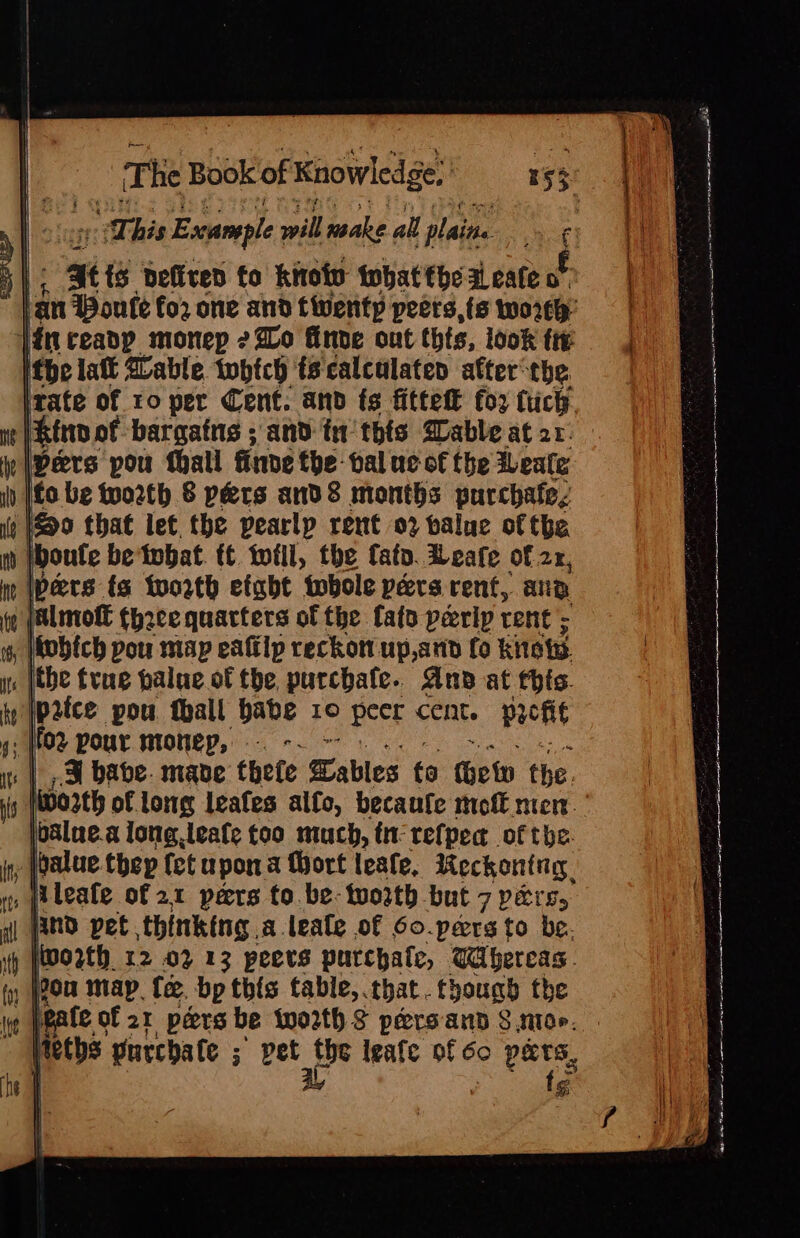 The Book of Knowledge. 153
This Example will make all plain.
It is desired to know what the Lease of
an House for one and twenty yeers, is worth
in ready money? To finde out this, look in
the last Table which is calculated after the
rate of 10 per Cent. and is fittest for such
kind of bargains; and in this Table at 21.
yéers you shall finde the value of the Lease
to be worth 8 yéers and 8 months purchase,
So that let the yearly rent or value of the
house be what it will, the said Lease of 21,
yéers is worth eight whole yéers rent, and
almost three quarters of the said yéerly rent;
which you may easily reckon up, and so know
the true value of the purchase. And at this
price you shall have 10 peer cent. profit
for your money,
I have made these Tables to shew the
worth of long leases also, because most men
value a long lease too much, in respect of the
value they set upon a short lease, Reckoning
a lease of 21 yéers to be worth but 7 yéers,
and yet thinking a lease of 60 yéers to be
worth 12 or 13 yeers purchase, Whereas
you may sée by this table, that though the
lease of 21 yéers be worth 8 yéers and 8 mo-
neths purchase; yet the lease of 60 yéers,
L is